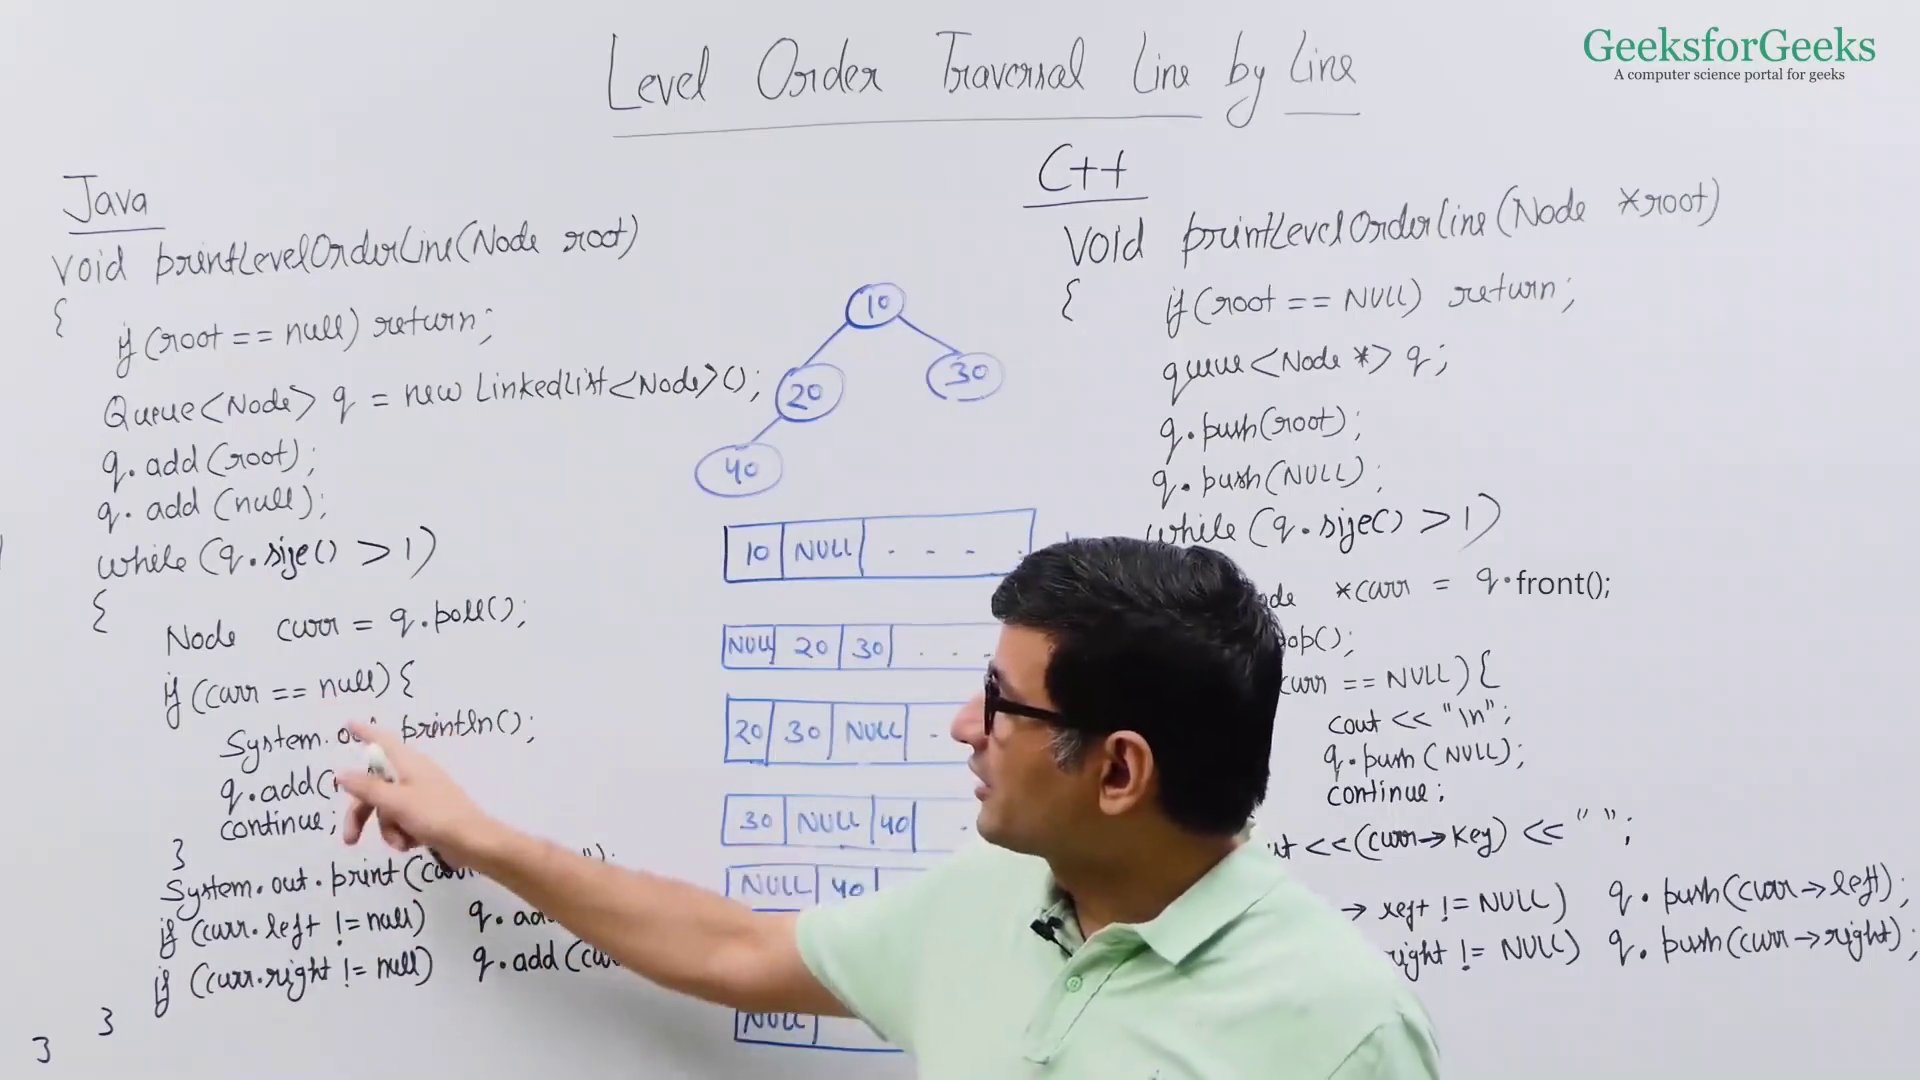 Level Order Traversal Line by Line
GeeksforGeeks
A computer science portal for geeks
Java
void printLevelOrderLine(Node root)
{
if (root == null) return;
Queue<Node> q = new LinkedList<Node>();
q.add(root);
q.add(null);
while (q.size() > 1)
{
Node curr = q.poll();
if (curr == null) {
System.ou println();
q.add(
continue;
}
System.out.print(cu ");
if (curr.left != null) q.add
if (curr.right != null) q.add(cu
}
}
10
20
30
40
10 NULL . - - .
NULL 20 30 . . .
20 30 NULL -
30 NULL 40 .
NULL 40
NULL
C++
void printLevelOrderLine(Node *root)
{
if (root == NULL) return;
queue<Node *> q;
q.push(root);
q.push(NULL);
while (q.size() > 1)
ode *curr = q.front();
op();
curr == NULL) {
cout << "\n";
q.push(NULL);
continue;
ut <<(curr->key) << " ";
-> left != NULL) q.push(curr->left);
right != NULL) q.push(curr->right);